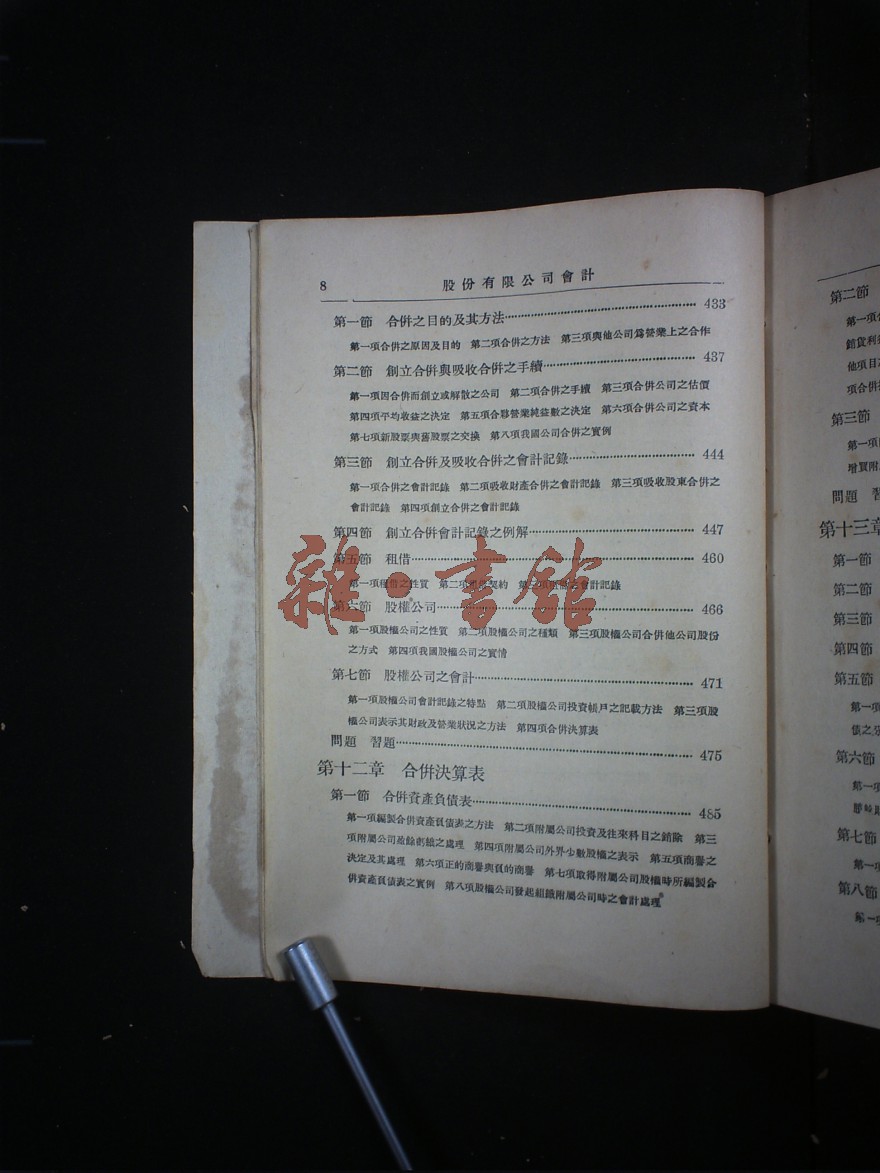 8 股份有限公司會計
第一節 合併之目的及其方法 433
第一項合併之原因及目的 第二項合併之方法 第三項與他公司爲營業上之合作
第二節 創立合併與吸收合併之手續 437
第一項因合併而創立或解散之公司 第二項合併之手續 第三項合併公司之估價
第四項平均收益之決定 第五項合夥營業純益數之決定 第六項合併公司之資本
第七項新股票與舊股票之交換 第八項我國公司合併之實例
第三節 創立合併及吸收合併之會計記錄 444
第一項合併之會計記錄 第二項吸收財產合併之會計記錄 第三項吸收股東合併之
會計記錄 第四項創立合併之會計記錄
第四節 創立合併會計記錄之例解 447
第五節 租借 460
第一項租借之性質 第二項 契約 第三項 之會計記錄
第六節 股權公司 466
第一項股權公司之性質 第二項股權公司之種類 第三項股權公司合併他公司股份
之方式 第四項我國股權公司之實情
第七節 股權公司之會計 471
第一項股權公司會計記錄之特點 第二項股權公司投資帳戶之記載方法 第三項股
權公司表示其財政及營業狀況之方法 第四項合併決算表
問題 習題 475
第十二章 合併決算表
第一節 合併資產負債表 485
第一項編製合併資產負債表之方法 第二項附屬公司投資及往來科目之銷除 第三
項附屬公司盈餘虧絀之處理 第四項附屬公司外界少數股權之表示 第五項商譽之
決定及其處理 第六項正的商譽與負的商譽 第七項取得附屬公司股權時所編製合
併資產負債表之實例 第八項股權公司發起組織附屬公司時之會計處理
雜·書館
第二節
第一項
銷貨利
他項目
項合併
第三節
第一項
增買附
問題 習
第十三章
第一節
第二節
第三節
第四節
第五節
第一項
債之
第六節
第一項
第七節
第一項
第八節
第一項